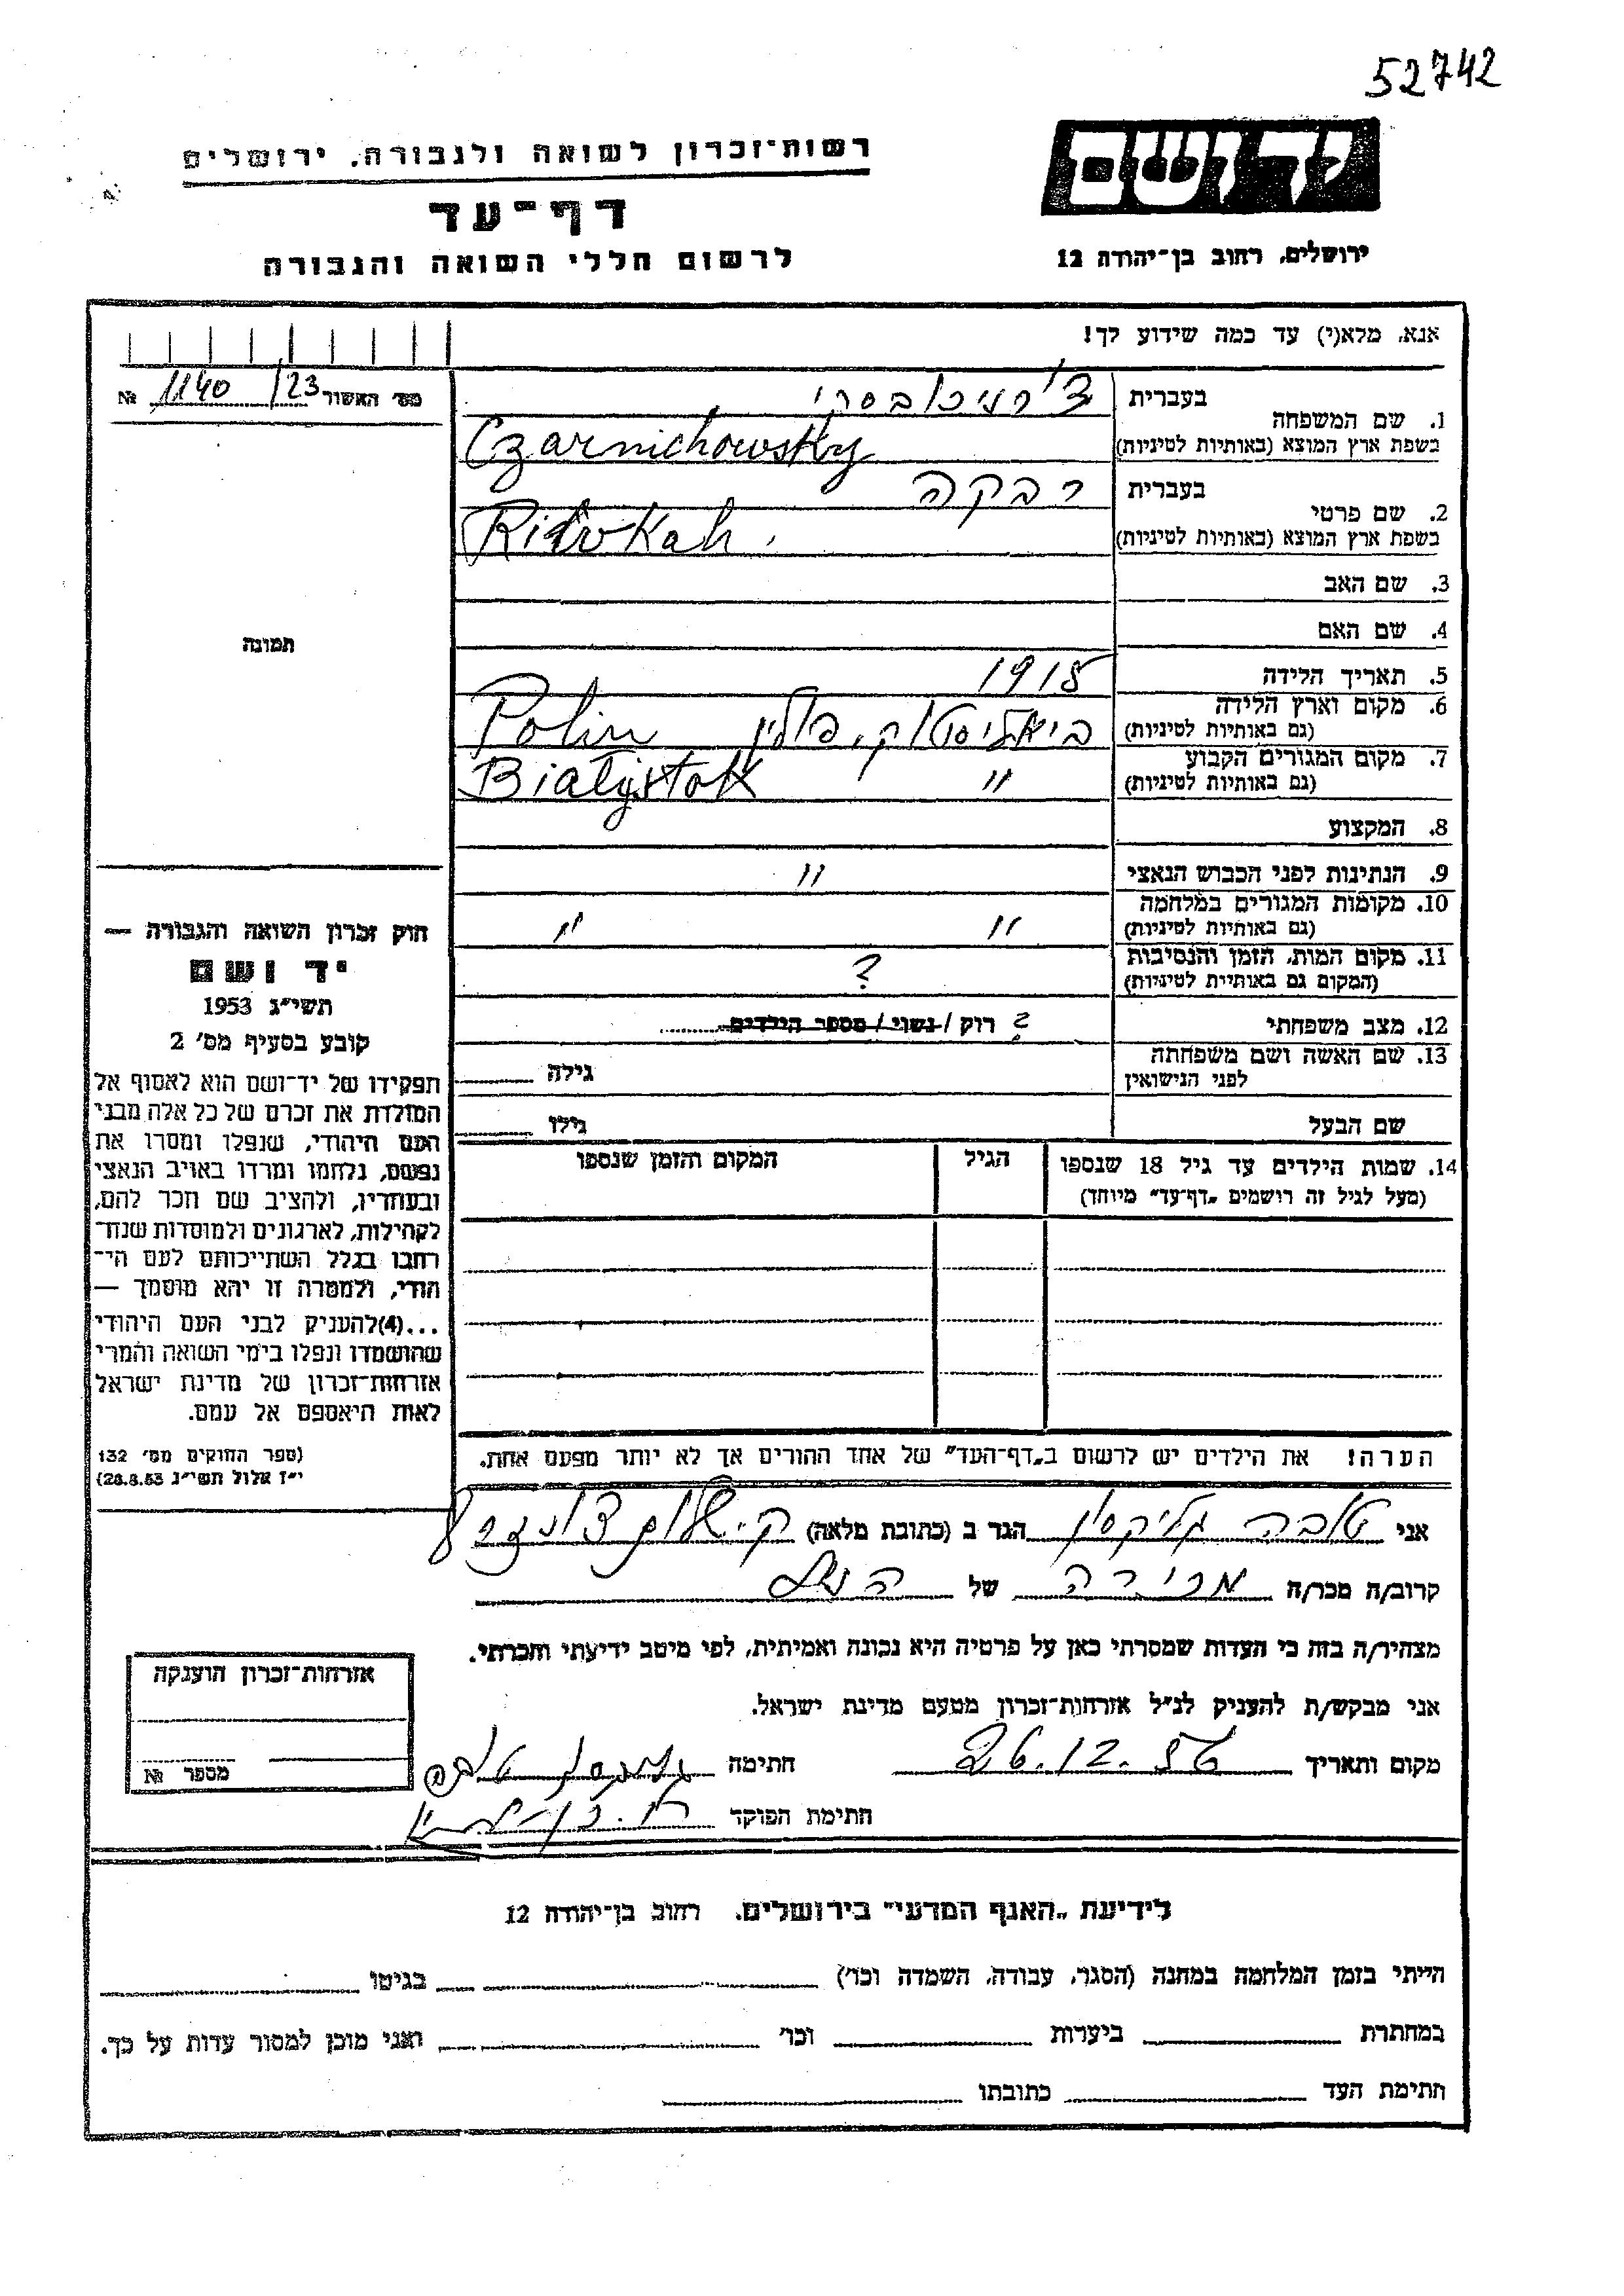 52742
יד ושם
ירושלים, רחוב בן-יהודה 12
רשות-זכרון לשואה ולגבורה, ירושלים
דף-עד
לרשום חללי השואה והגבורה
אנא, מלא(י) עד כמה שידוע לך!
מס' האשור 1140/23 №
תמונה
1. שם המשפחה בעברית צ'רניכובסקי
בשפת ארץ המוצא (באותיות לטיניות) Czarnichowsky
2. שם פרטי בעברית רבקה
בשפת ארץ המוצא (באותיות לטיניות)
3. שם האב
4. שם האם
5. תאריך הלידה 1918
6. מקום וארץ הלידה (גם באותיות לטיניות) ביאליסטוק, פולין Polin
7. מקום המגורים הקבוע (גם באותיות לטיניות) " Białystok
8. המקצוע
9. הנתינות לפני הכבוש הנאצי "
10. מקומות המגורים במלחמה (גם באותיות לטיניות) " "
11. מקום המות, הזמן והנסיבות (המקום גם באותיית לטיניות) ?
12. מצב משפחתי ? רוק / נשוי / מספר הילדים
13. שם האשה ושם משפחתה לפני הנישואין גילה
שם הבעל גילו
14. שמות הילדים עד גיל 18 שנספו הגיל המקום והזמן שנספו
(מעל לגיל זה רושמים "דף-עד" מיוחד)
הערה! את הילדים יש לרשום ב"דף-העד" של אחד ההורים אך לא יותר מפעם אחת.
חוק זכרון השואה והגבורה —
יד ושם
תשי"ג 1953
קובע בסעיף מס' 2
תפקידו של יד-ושם הוא לאסוף אל
המולדת את זכרם של כל אלה מבני
העם היהודי, שנפלו ומסרו את
נפשם, נלחמו ומרדו באויב הנאצי
ובעוזריו, ולהציב שם וזכר להם,
לקהילות, לארגונים ולמוסדות שנח-
רבו בגלל השתייכותם לעם הי-
הודי, ולמטרה זו יהא מוסמך —
...(4)להעניק לבני העם היהודי
שהושמדו ונפלו בימי השואה והמרי
אזרחות-זכרון של מדינת ישראל
לאות היאספם אל עמם.
(ספר החוקים מס' 132
י"ז אלול תשי"ג 28.8.53)
אני טובה גליקסון הגר ב (כתובת מלאה) ק.
קרוב/ה מכר/ה מכירה של הנ"ל
מצהיר/ה בזה כי העדות שמסרתי כאן על פרטיה היא נכונה ואמיתית, לפי מיטב ידיעתי והכרתי.
אני מבקש/ת להעניק לנ"ל אזרחות-זכרון מטעם מדינת ישראל.
מקום ותאריך 26.12.56 חתימה גליקסון טובה
חתימת הפוקד
אזרחות-זכרון הוענקה
מספר №
לידיעת "האגף המדעי" בירושלים, רחוב בן-יהודה 12
הייתי בזמן המלחמה במחנה (הסגר, עבודה, השמדה וכו') בגיטו
במחתרת ביערות וכו' ואני מוכן למסור עדות על כך.
חתימת העד כתובתו